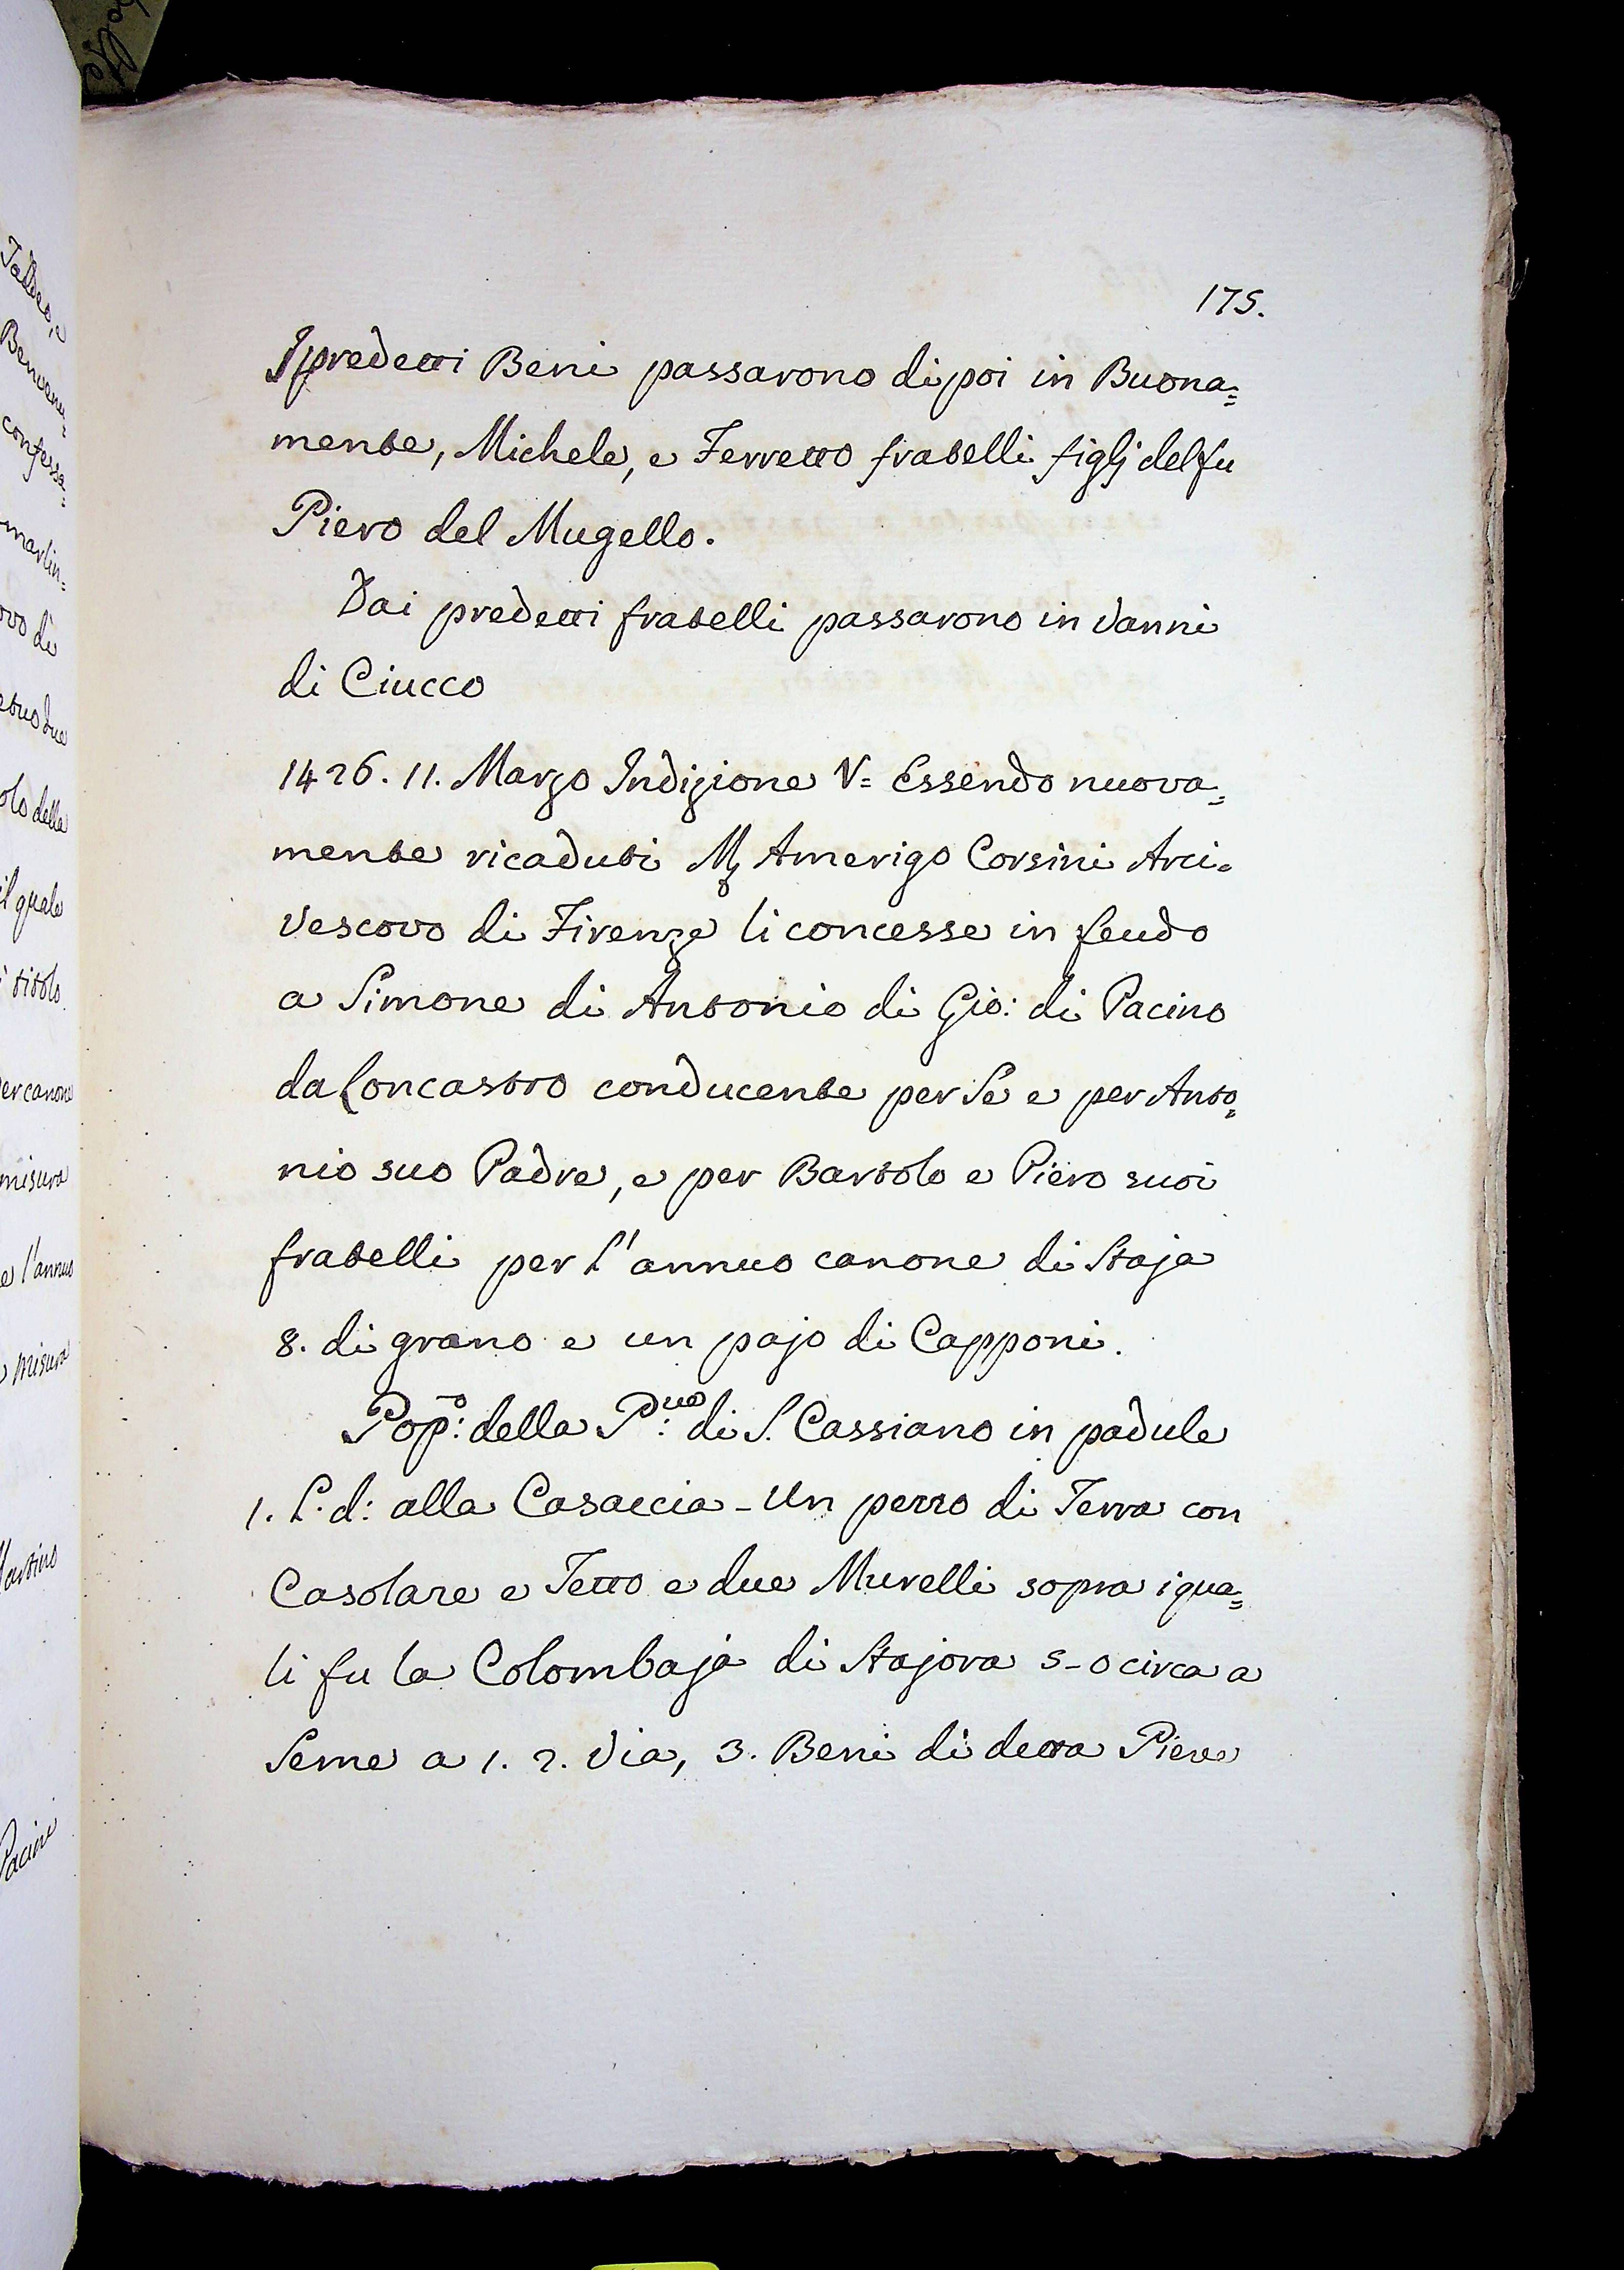 175.
I predetti Beni passarono di poi in Buona=
mente, Michele, e Ferretto fratelli figlj del fu
Piero del Mugello.
Dai predetti fratelli passarono in Vanni
di Ciucco
1426. 11. Marzo Indizione V= Essendo nuova=
mente ricaduti M. Amerigo Corsini Arci=
Vescovo di Firenze li concesse in feudo
a Simone di Antonio di Gio: di Pacino
da Loncastro conducente per Se e per Anto=
nio suo Padre, e per Bartolo e Piero suoi
fratelli per l'annuo canone di Staja
8. di grano e un pajo di Capponi.
Pop.o: della P.ve: di S. Cassiano in padule
1. L. d: alla Casaccia - Un pezzo di Terra con
Casolare e Tetto e due Murelli sopra i qua=
li fu la Colombaja di Stajora 5-0 circa a
Seme a 1. 2. Via, 3. Beni di detta Pieve
Taddeo, e
Benvenu=
confessa=
ovo di
olo della
il quale
titolo
per canone
misura
e l'annuo
misura
Pacini